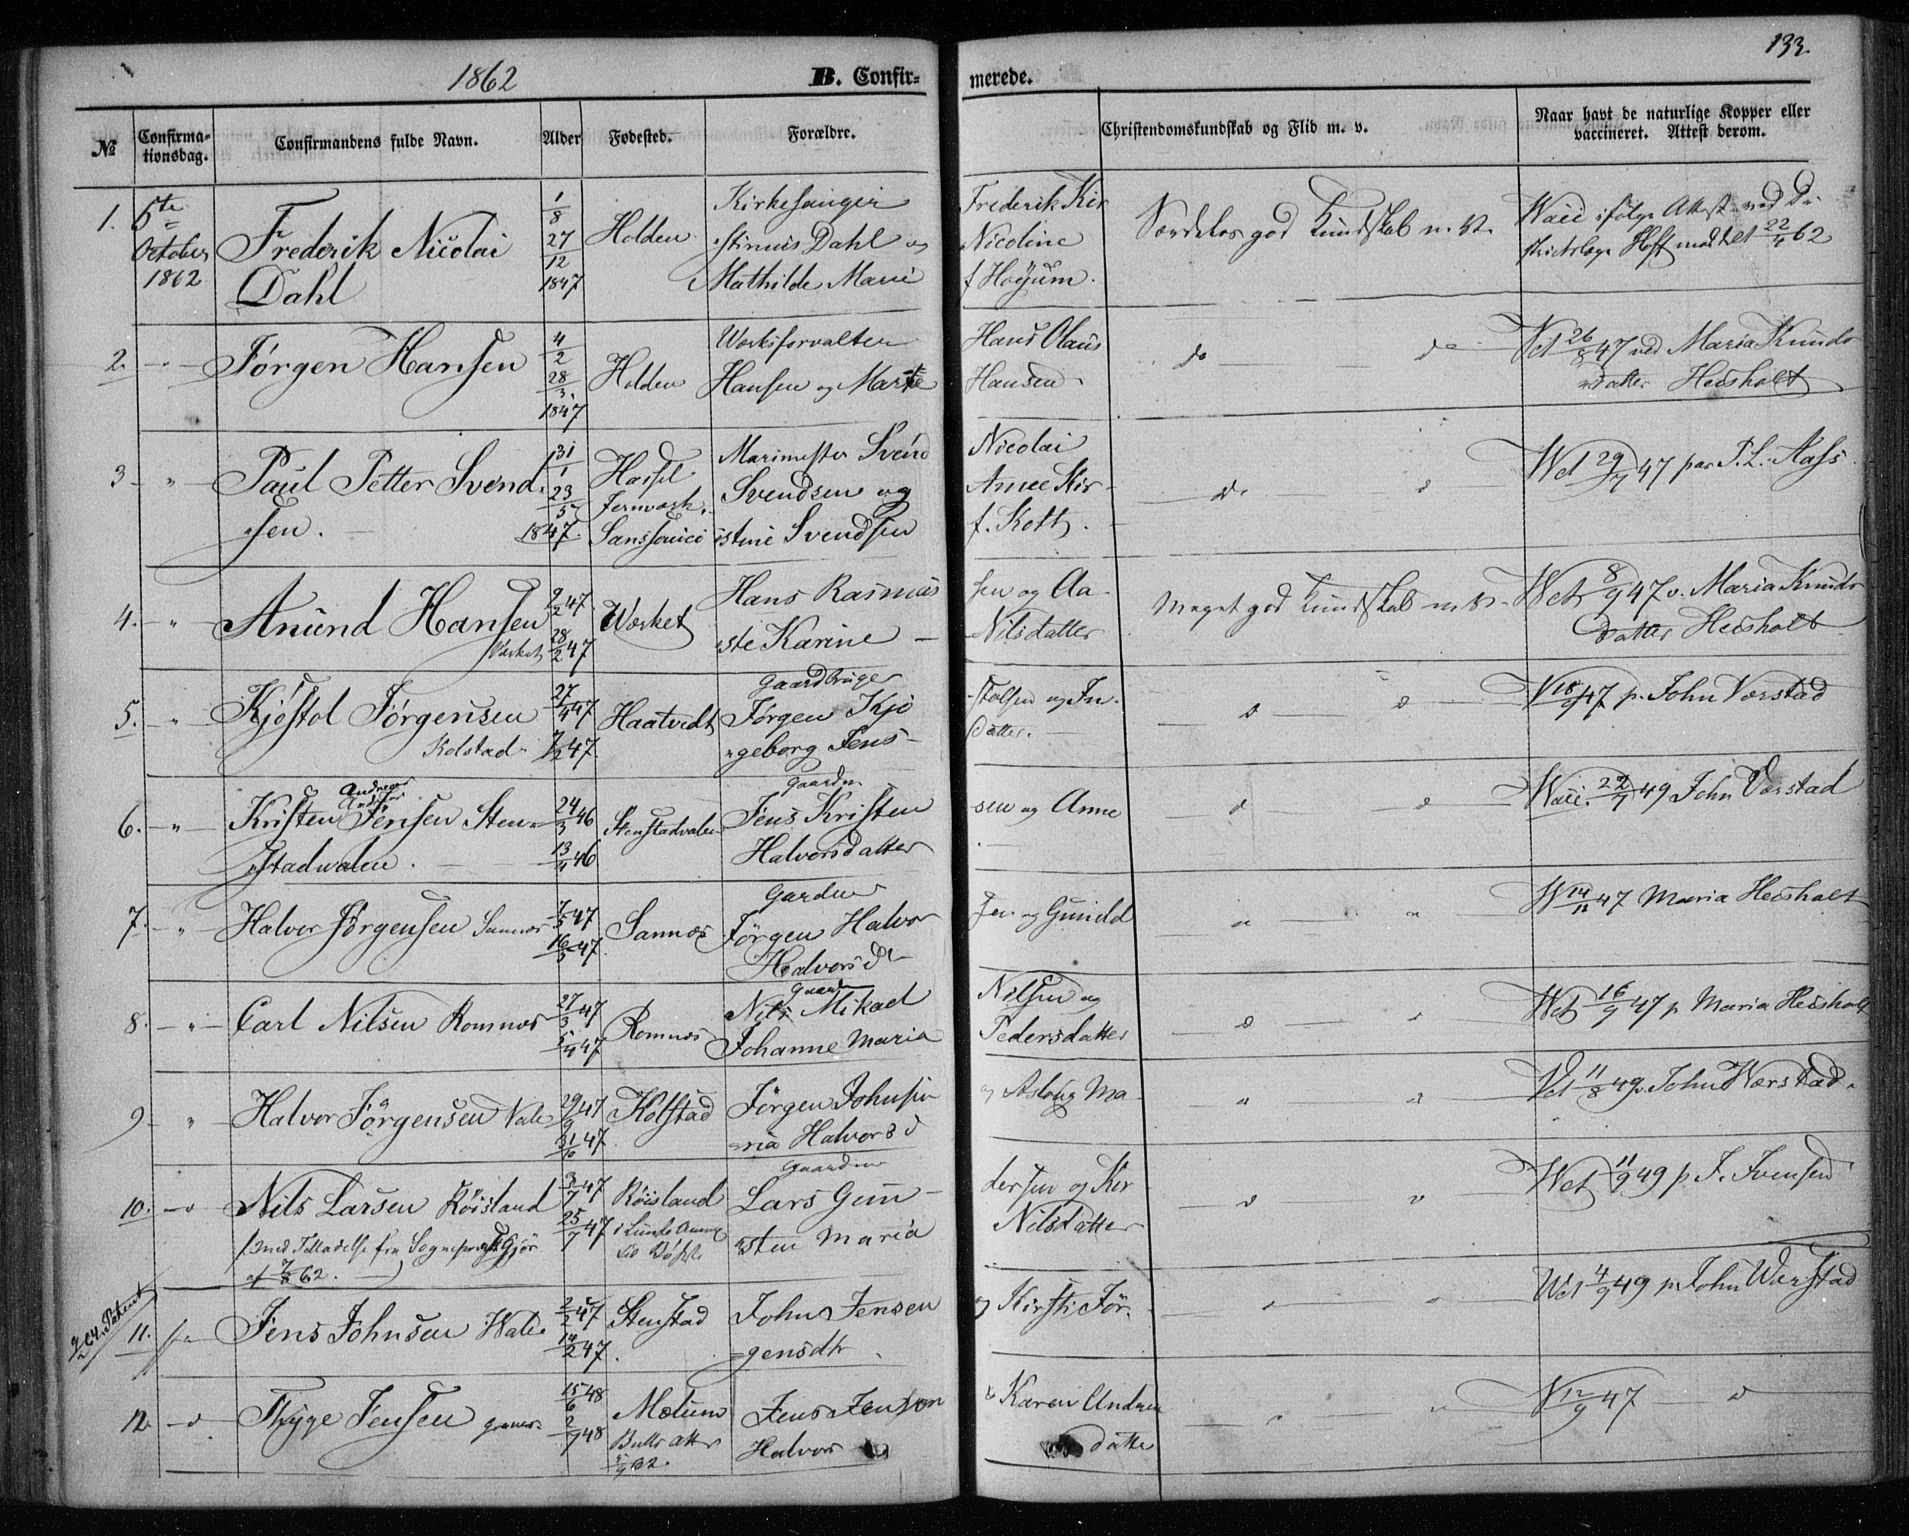 1862
B. Confir-
merede.
133.
№
Confirma-
tionsdag.
Confirmandens fulde Navn.
Alder
Fødested.
Forældre.
Christendomskundskab og Flid m. v.
Naar havt de naturlige Kopper eller
vaccineret. Attest derom.
1. 5te October 1862
Frederik Nicolai
Dahl
1/8 27/12 1847
Holden
Kirkesanger Frederik Kir
stinus Dahl og Nicoline
Mathilde Marie f Høyum.
Særdeles god Kundskab
Vacc ifølge Attest ved Di-
striktslæge Hoft 22/4 62
2. - " - Jørgen Hansen
4/2 28/3. 1847
Holden
Værksforvalter Hans Olaus
Hansen og Marte Hansen
do do
Vet 26/8 47 ved Maria Knuds
datter Heisholt
3 - " - Paul Petter Svend
sen.
31/1 23/5 1847.
Hassel
Jernværk.
Sanssouci
Svend Nicolai
Svendsen og Anne Kir-
istine Svendsen f. Kott.
do d
Vet 29/7 47 par P. L. Aass
4. - " - Anund Hansen
Værket
2/2 47. 28/2 47
Værket
Hans Rasmus sen og Aa-
ste Karine - Nilsdatter
Meget god Kundskab
Vet 8/9 47 v. Maria Knuds
datter Heisholt
5. " Kjøstol Jørgensen
Kolstad
27/4 47 7/2 47.
Haatvedt
Gaardbruger
Jørgen Kjø stolsen og In-
geborg Jens- datter.
d d
V 18/9 47 p. John Værstad
6. - " - Kristen Andreas Jensen Sten-
stadvalen.
24/3 46 13/4 46
Stenstadvalen
Gaardm
Jens Kristen sen og Anne
Halvorsdatter
d d
Vacc. 22/7 49 John Værstad
7. - " - Halvor Jørgensen Sannæs
7/5 47 16/5 47.
Sannæs
Gardm
Jørgen Halvor sen og Gunild
Halvorsd
" "
V 14/11 47 Maria Heisholt
8. - " - Carl Nilsen Romnæs
27/3 47 5/4 47
Romnæs
Gaardm
Nils Mikael Nilsen og
Johanne Maria Pedersdatter
d "
Vet 16/9 47 p Maria Heisholt
9 - " Halvor Jørgensen Vale
29/9 47 31/10 47
Kolstad
Jørgen Johnsen og Aslaug Ma-
ria Halvorsd
" "
Vet 11/8 49 p. John Værstad
10. - " Nils Larsen Røisland
(med Tilladelse fra Sognepræst Gjør
af 7/8 62.
3/7 47 25/7 47
Røisland
i Lunde Annex
til Bø
Gaardm
Lars Gun- dersen og Kir
sten Maria Nilsdatter
" "
Vet 11/9 49 p J. Ivensen
11. Jens Johnsen Vale
2/2 47 14/2 47.
Stenstad
John Jensen og Kirsti Jør-
gensdtr
" "
Vet 4/9 49 p. John Værstad
12. - " Thyge Jensen
15/6 48 2/7 48
Melum
5/9 62.
Jens Jensen & Karen
Halvors datte
" "
V 12/9 47 d